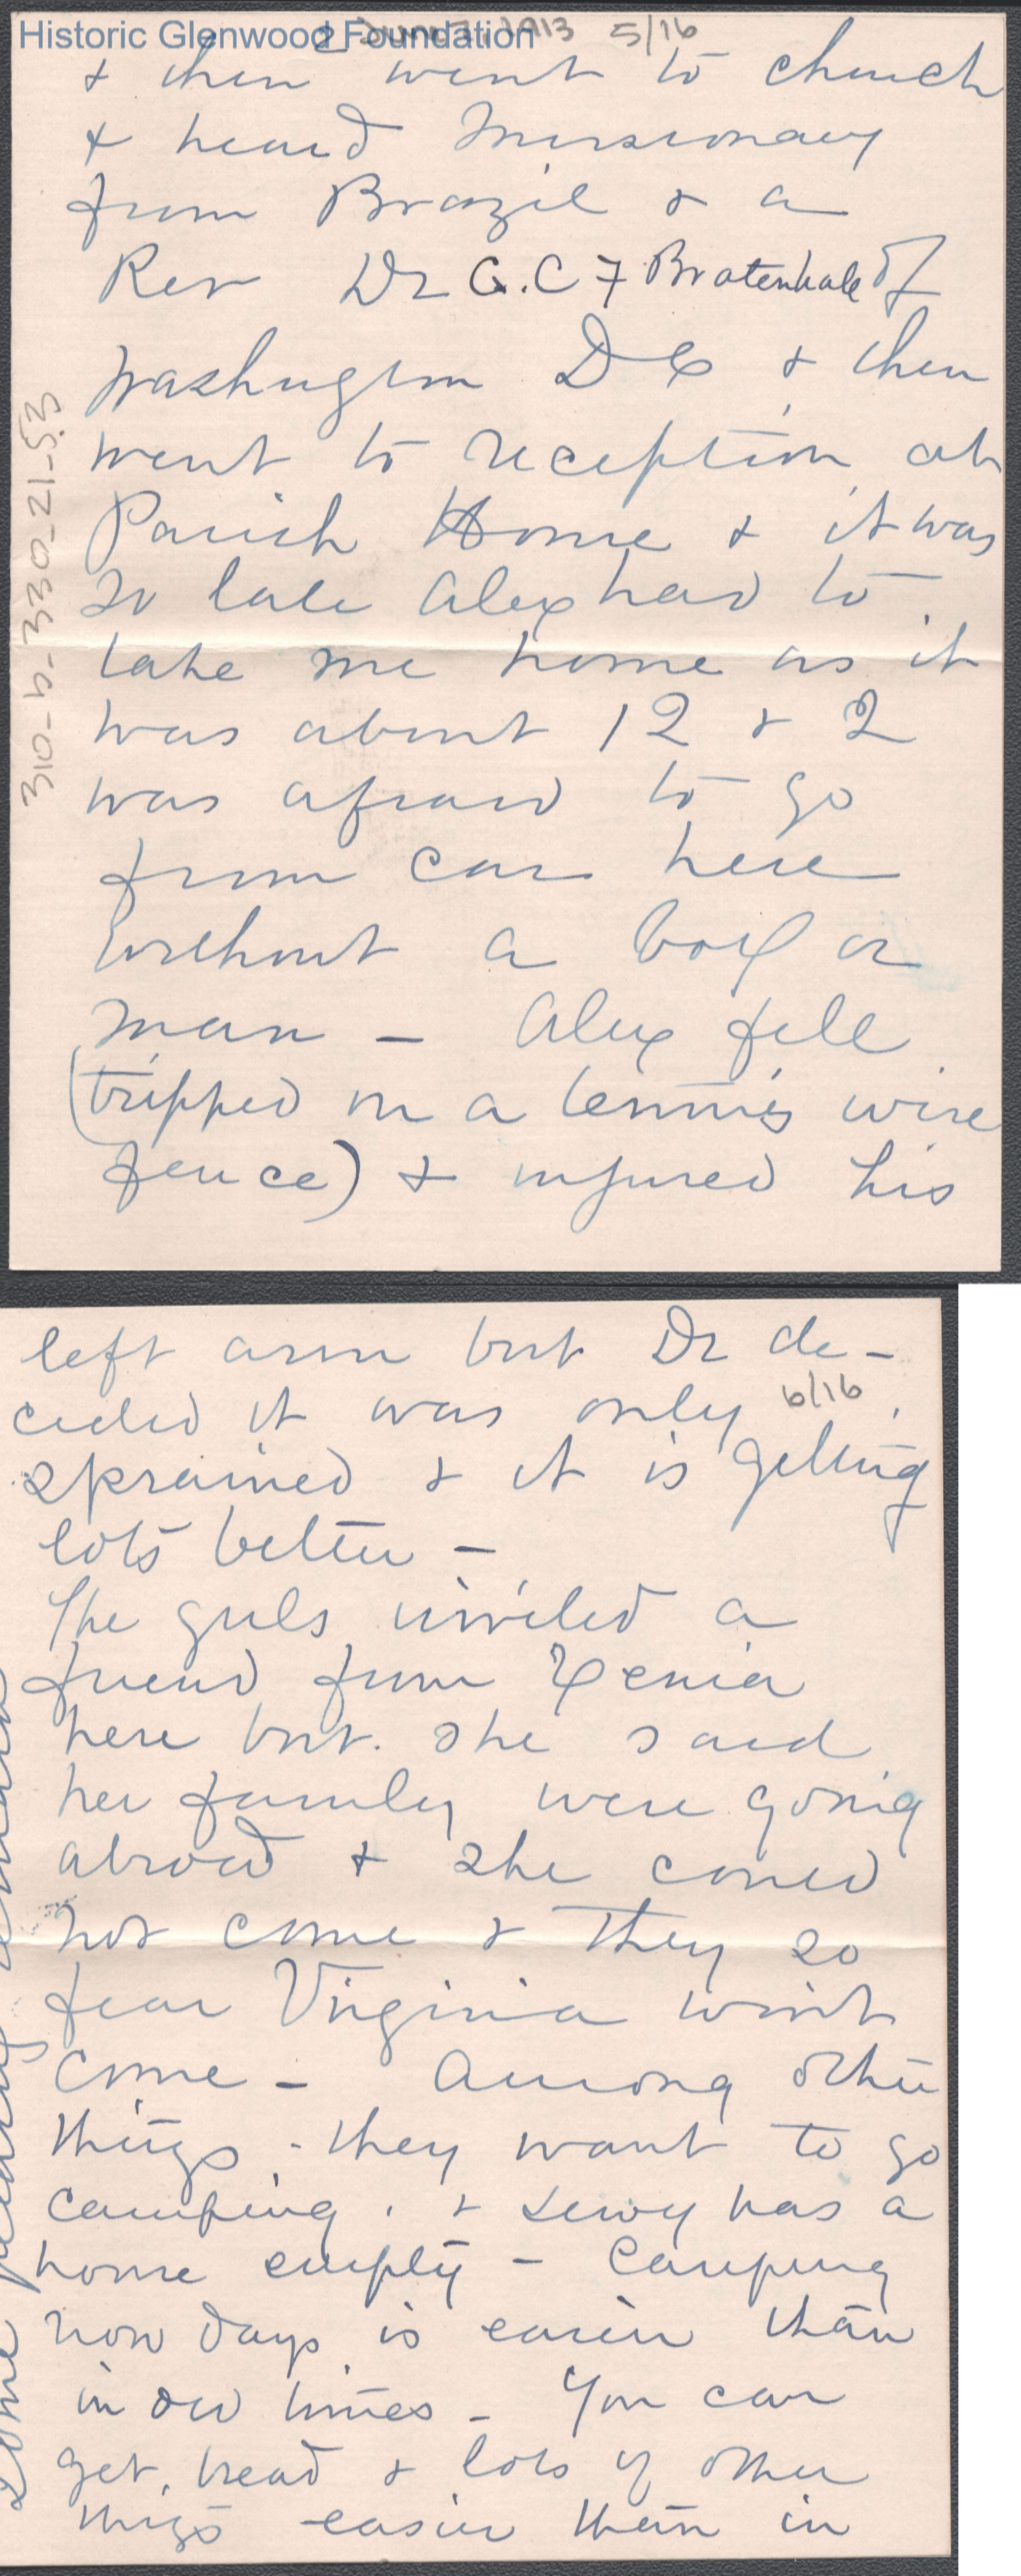 Historic Glenwood Foundation
1913 5/16
& then went to church
& heard Missionary
from Brazil & a
Rev Dr G.C F Bratenhale of
Washington D C & then
went to reception at
Parish Home & it was
so late Alex had to
take me home as it
was about 12 & I
was afraid to go
from car here
without a boy or
man – Alex fell
(tripped on a tennis wire
fence) & injured his
310-b-330-21-53
left arm but Dr de-
cided it was only
6/16
sprained & it is getting
lots better –
The girls invited a
friend from Xenia
here but she said
her family were going
abroad & she could
not come & they so
fear Virginia won't
come – Among other
things they want to go
camping & Lewy has a
home empty – Camping
now days is easier than
in old times – You can
get bread & lots of other
things easier than in